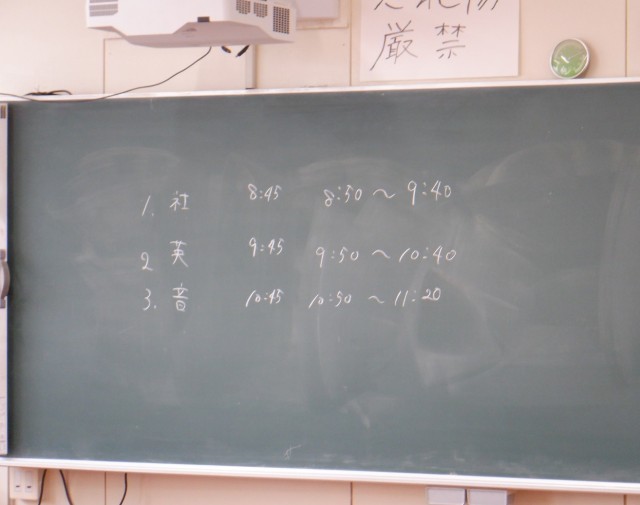 厳禁
1. 社 8:45 8:50 ～ 9:40
2 英 9:45 9:50 ～ 10:40
3. 音 10:45 10:50 ～ 11:20